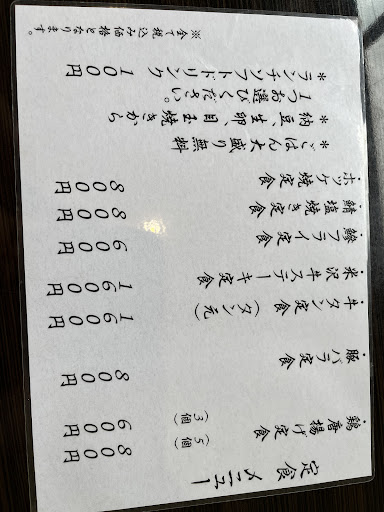 定食メニュー
・鶏唐揚げ定食 （5個） 800円
（3個） 600円
・豚バラ定食 800円
・牛タン定食（タン元） 1600円
・米沢牛ステーキ定食 1600円
・鯵フライ定食 600円
・鯖塩焼き定食 800円
・ホッケ焼定食 800円
＊ごはん大盛り無料
＊納豆、生卵、目玉焼きから
1つお選びください。
＊ランチソフトドリンク 100円
※全て税込み価格となります。